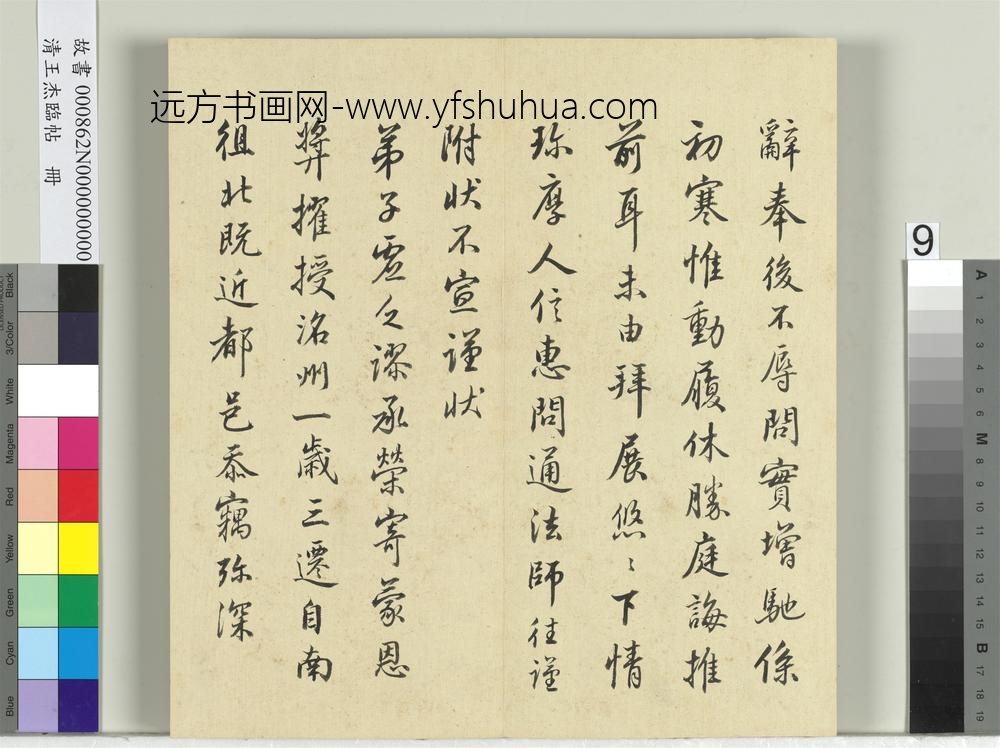 远方书画网-www.yfshuhua.com
故書 000862N000000000
清王杰臨帖 冊
9
辭奉後不辱問實增馳係
初寒惟動履休勝庭誨推
前耳未由拜展悠〻下情
珎摩人信惠問通法師往謹
附狀不宣謹狀
弟子虛乏謬承榮寄蒙恩
奬擢授洺州一歲三遷自南
徂北既近都邑忝竊弥深
Black
3/Color
White
Magenta
Red
Yellow
Green
Cyan
Blue
A
1
2
3
4
5
6
M
8
9
10
11
12
13
14
15
B
17
18
19